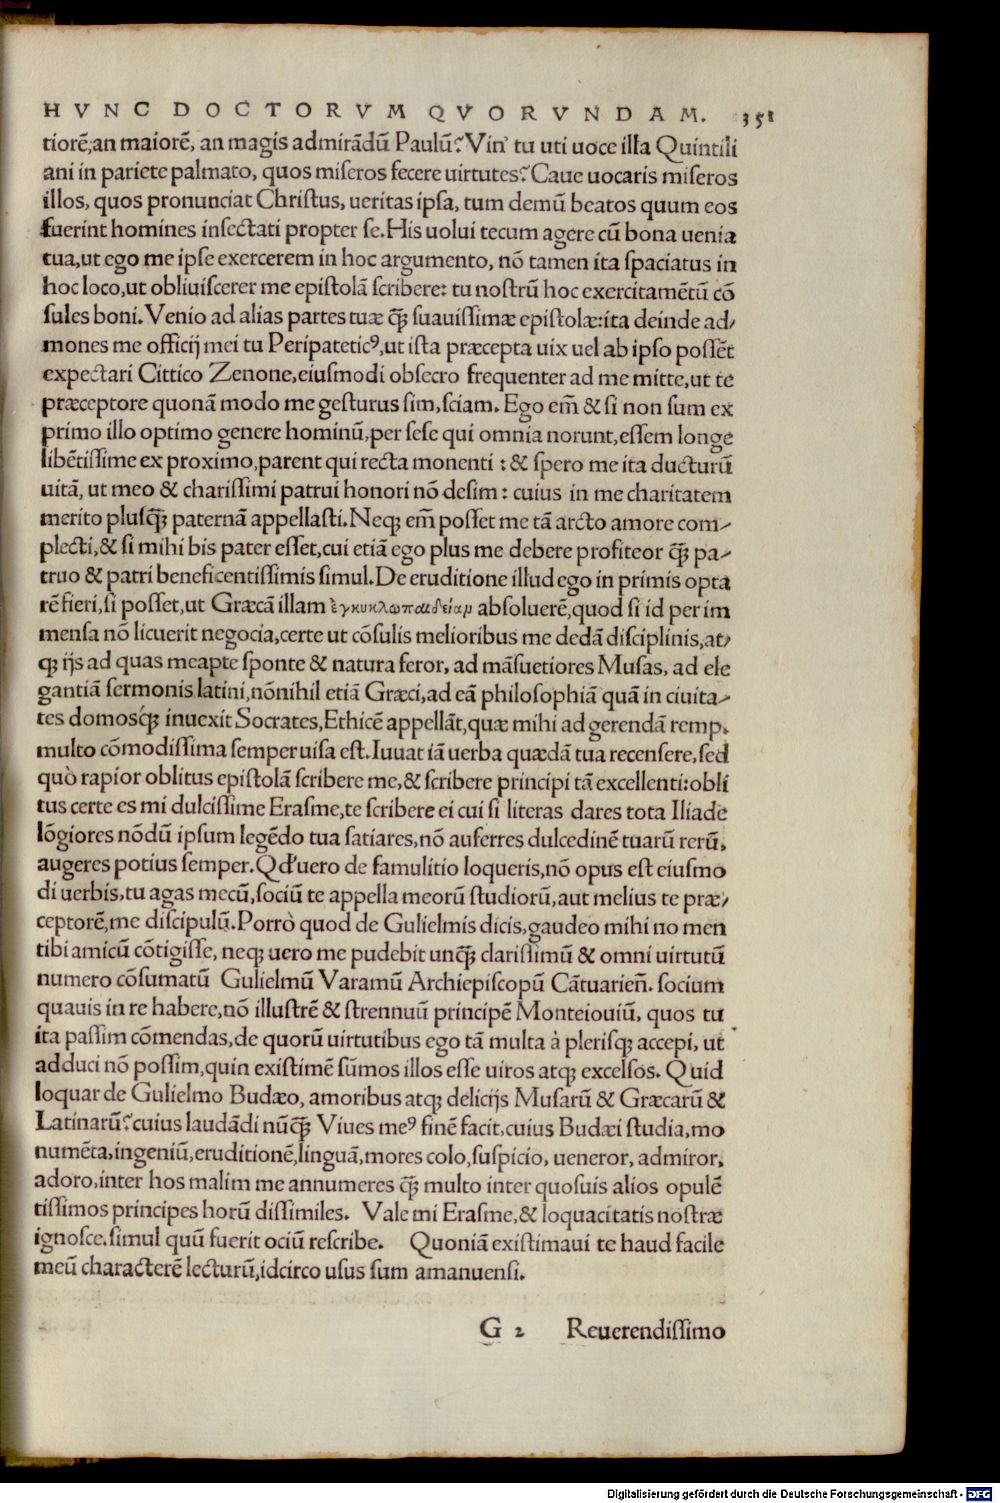 HVNC DOCTORVM QVORVNDAM. 351
tiorē,an maiorē, an magis admirādū Paulū? Vin' tu uti uoce illa Quintili
ani in pariete palmato, quos miseros fecere uirtutes? Caue uocaris miseros
illos, quos pronunciat Christus, ueritas ipsa, tum demū beatos quum eos
fuerint homines insectati propter se. His uolui tecum agere cū bona uenia
tua,ut ego me ipse exercerem in hoc argumento, nō tamen ita spaciatus in
hoc loco,ut obliuiscerer me epistolā scribere: tu nostrū hoc exercitamētū cō
sules boni. Venio ad alias partes tuæ q̄ꝫ suauissimæ epistolæ:ita deinde ad/
mones me officij mei tu Peripateticꝰ,ut ista præcepta uix uel ab ipso possēt
expectari Cittico Zenone,eiusmodi obsecro frequenter ad me mitte,ut te
præceptore quonā modo me gesturus sim,sciam. Ego em̄ & si non sum ex
primo illo optimo genere hominū,per sese qui omnia norunt,essem longe
libētissime ex proximo,parent qui recta monenti : & spero me ita ducturū
uitā, ut meo & charissimi patrui honori nō desim : cuius in me charitatem
merito plusq̄ꝫ paternā appellasti. Neqꝫ em̄ posset me tā arcto amore com/
plecti,& si mihi bis pater esset,cui etiā ego plus me debere profiteor q̄ꝫ pa/
truo & patri beneficentissimis simul. De eruditione illud ego in primis opta
rē fieri,si posset,ut Græcā illam ἐγκυκλωπαιδείαν absoluerē,quod si id per im
mensa nō licuerit negocia,certe ut cōsulis melioribus me dedā disciplinis,at/
qꝫ ijs ad quas meapte sponte & natura feror, ad māsuetiores Musas, ad ele
gantiā sermonis latini,nōnihil etiā Græci,ad eā philosophiā quā in ciuita/
tes domosq́ꝫ inuexit Socrates,Ethicē appellāt,quæ mihi ad gerendā remp.
multo cōmodissima semper uisa est. Iuuat iā uerba quædā tua recensere,sed
quò rapior oblitus epistolā scribere me,& scribere principi tā excellenti:obli
tus certe es mi dulcissime Erasme,te scribere ei cui si literas dares tota Iliade
lōgiores nōdū ipsum legēdo tua satiares,nō auferres dulcedinē tuarū rerū,
augeres potius semper. Qđ uero de famulitio loqueris,nō opus est eiusmo
di uerbis,tu agas mecū,sociū te appella meorū studiorū,aut melius te præ/
ceptorē,me discipulū. Porrò quod de Gulielmis dicis,gaudeo mihi no men
tibi amicū cōtigisse, neqꝫ uero me pudebit unq̄ꝫ clarissimū & omni uirtutū
numero cōsumatū Gulielmū Varamū Archiepiscopū Cātuarien̄. socium
quauis in re habere,nō illustrē & strennuū principē Monteiouiū, quos tu
ita passim cōmendas,de quorū uirtutibus ego tā multa à plerisqꝫ accepi, ut
adduci nō possim,quin existimē sūmos illos esse uiros atqꝫ excelsos. Quid
loquar de Gulielmo Budæo, amoribus atqꝫ delicijs Musarū & Græcarū &
Latinarū? cuius laudādi nūq̄ꝫ Viues meꝰ finē facit,cuius Budæi studia,mo
numēta,ingeniū,eruditionē,linguā,mores colo,suspicio, ueneror, admiror,
adoro,inter hos malim me annumeres q̄ꝫ multo inter quosuis alios opulē
tissimos principes horū dissimiles. Vale mi Erasme,& loquacitatis nostræ
ignosce.simul quū fuerit ociū rescribe. Quoniā existimaui te haud facile
meū characterē lecturū,idcirco usus sum amanuensi.
G 2 Reuerendissimo
Digitalisierung gefördert durch die Deutsche Forschungsgemeinschaft - DFG